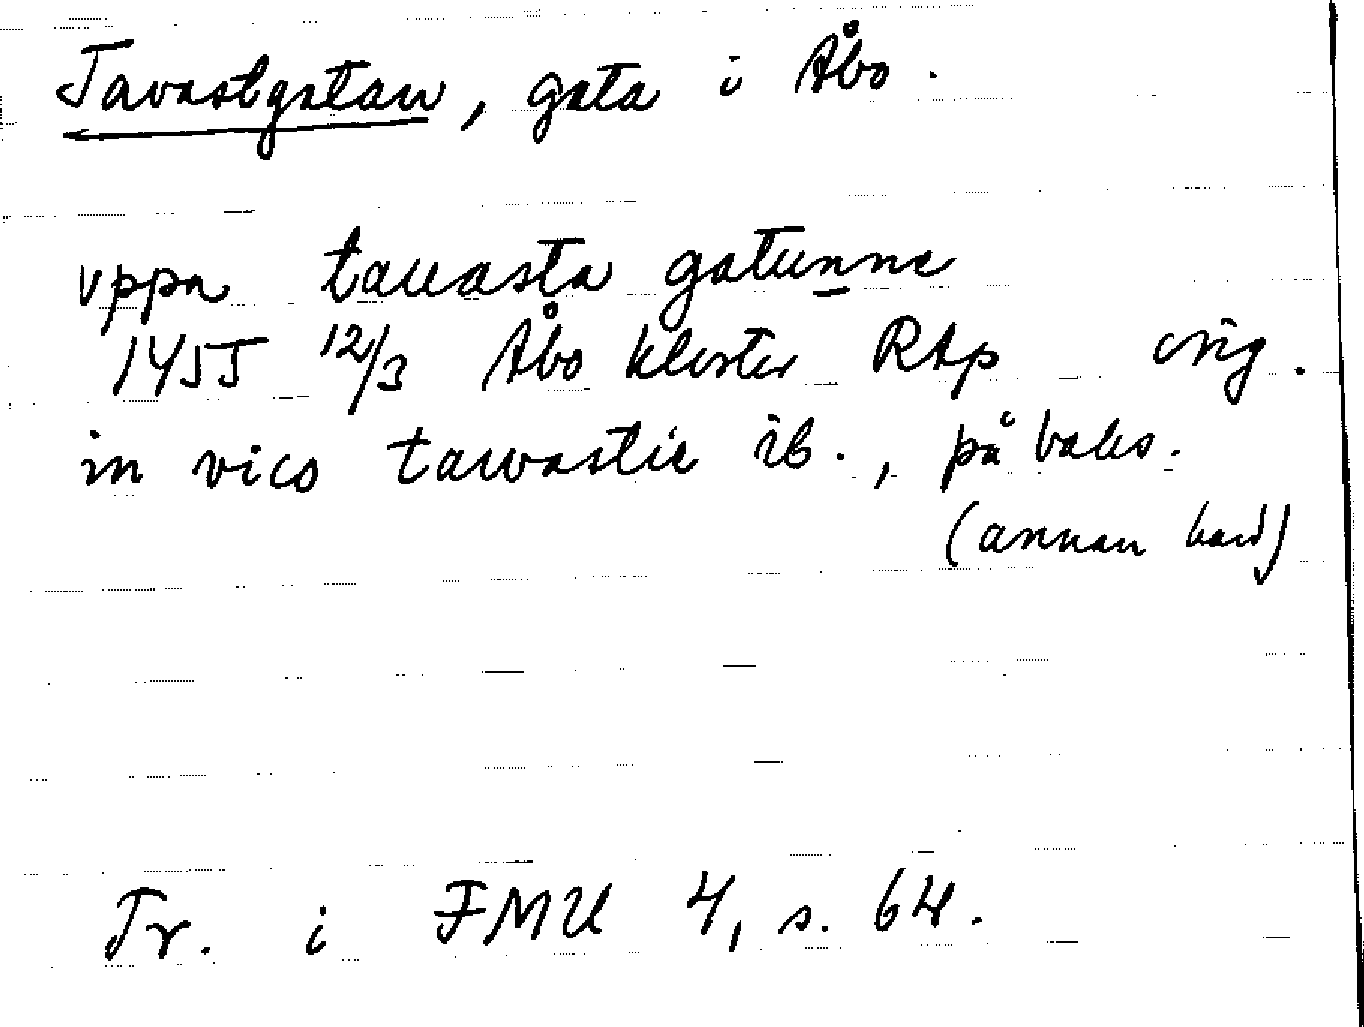 Tavastgatan, gata i Åbo.
vppa tauasta gatunne
1455 12/3 Åbo kloster RAp orig.
in vico tawastie ib., på baks.
(annan hand)
Tr. i FMU 4, s. 64.